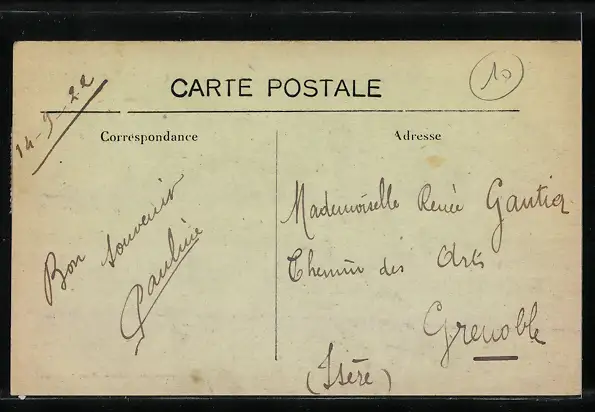 CARTE POSTALE
10
14-9-22
Correspondance
Adresse
Bon souvenir
Pauline
Mademoiselle Renée Gautier
Chemin des Arts
Grenoble
(Isère)